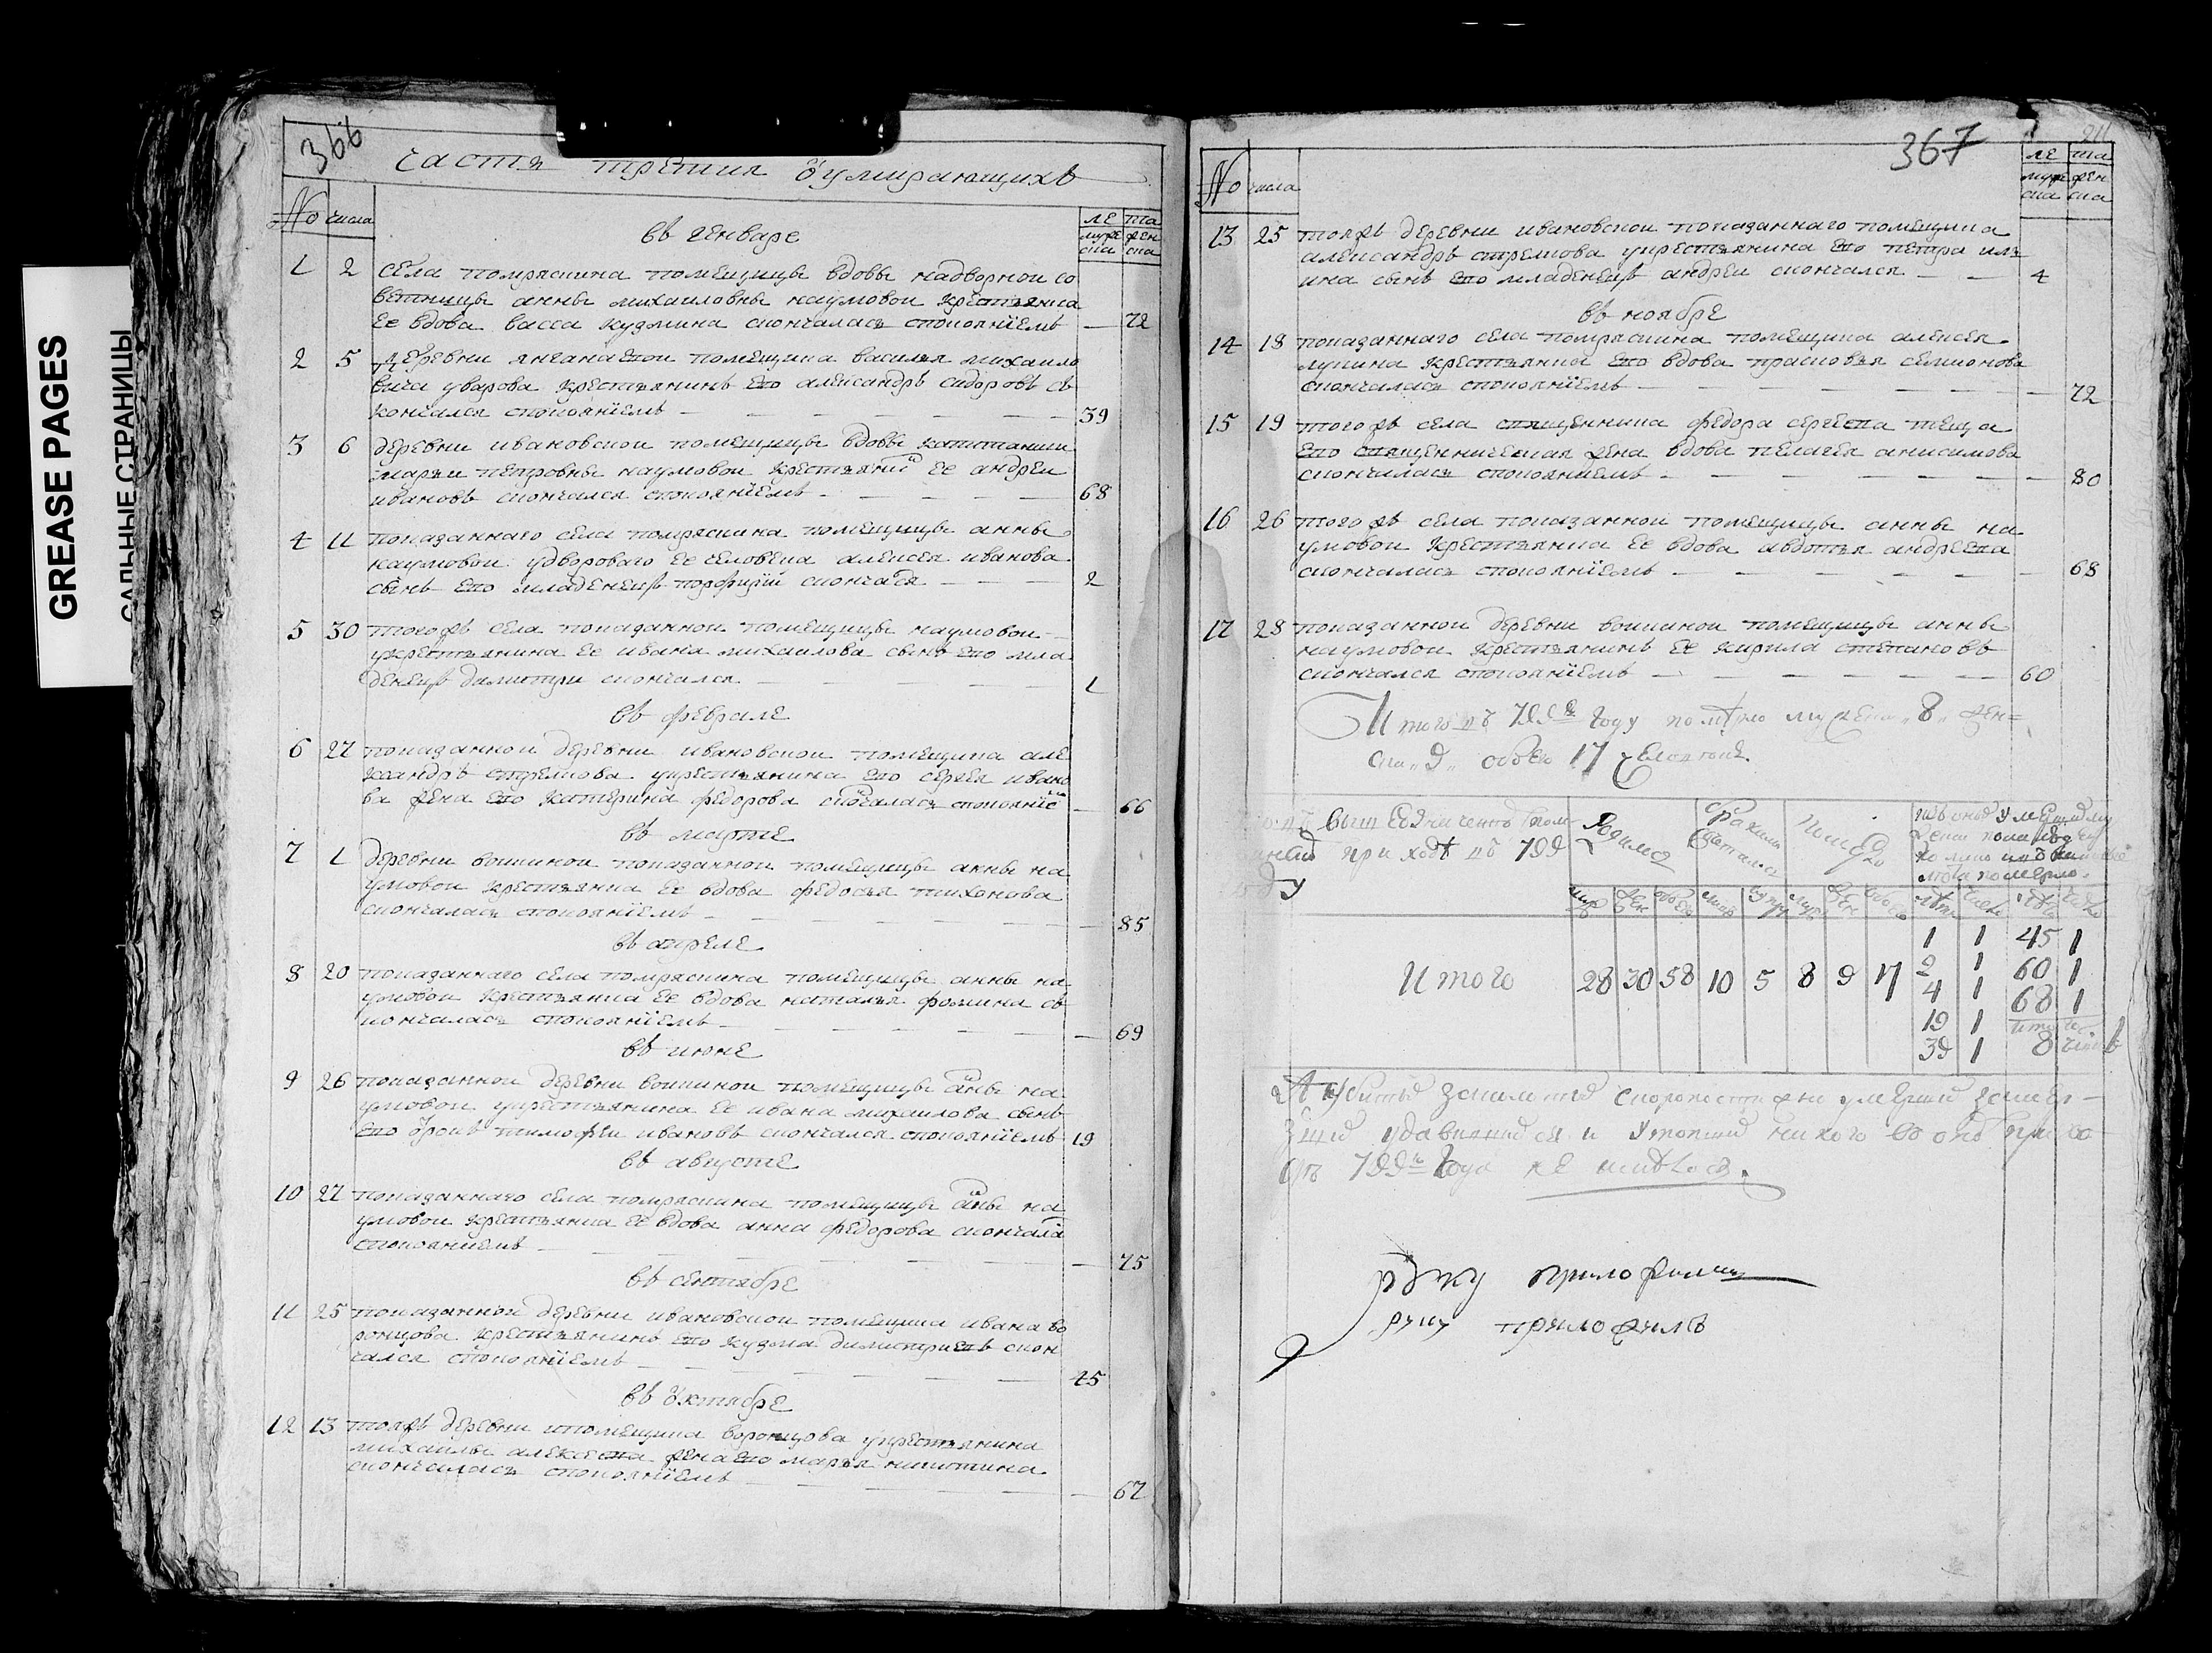 GREASE PAGES
САЛЬНЫЕ СТРАНИЦЫ
366
Часть третия оумирающихъ
№ числа
ле та
муже жен
ска ска
въ генваре
1 2 села помряскина помещицы вдовы надворной со
ветницы анны михаиловны наумовой крестьянка
ее вдова васса кузмина скончалась спокояніемъ — 72
2 5 деревни янгана помещика василья михаило
вича уварова крестьянинъ ево александръ сидоровъ съ
кончался спокояніемъ — 39
3 6 деревни ивановской помещицы вдовы капитанши
марьи петровны наумовой крестьянинъ ее андреи
ивановъ скончался спокояніемъ — 68
4 11 показаннаго села помряскина помещицы анны
наумовой удвороваго ее человека алексея иванова
сынъ ево младенецъ порфирий скончася — 2
5 30 тогожъ села показанной помещицы наумовой
укрестьянина ее ивана михаилова сынъ ево мла
денецъ димитри скончался — 1
въ феврале
6 27 показанной деревни ивановской помещика але
ксандръ стрелкова укрестьянина ево сергея ивано
ва жена ево катерина федорова скочалась спокояніе — 66
въ марте
7 1 деревни воикиной показанной помещицы анны на
умовой крестьянка ее вдова федосья тихонова
скончалась спокояніемъ — 85
въ апреле
8 20 показаннаго села помряскина помещицы анны на
умовой крестьянка ее вдова наталья фомина съ
кончалась спокояніемъ — 69
въ июне
9 26 показанной деревни воикиной помещицы аны на
умовой укрестьянина ее ивана михаилова сынъ
ево отрокъ тимофеи ивановъ скончался спокояніемъ 19
въ августе
10 27 показаннаго села помряскина помещицы аны на
умовой крестьянка ее вдова анна федорова скончала
спокояниемъ — 75
въ сентябре
11 25 показанной деревни ивановской помещика ивана во
ронцова крестьянинъ ево кузма димитриевъ скон
чался спокояніемъ — 45
въ октябре
12 13 тояжъ деревни ипомещика воронцова укрестьянина
михаилы алексеева жена ево марья никитина
скончалась спокояніемъ — 67
367
№ числа
ле та
муже жен
ска ска
13 25 тояжъ деревни ивановской показаннаго помещика
александръ стрелкова укрестьянина ево петра иль
ина сынъ ево младенецъ андреи скончался — 4
въ ноябре
14 18 показаннаго села помряскина помещика алексея
лукина крестьянка ево вдова прасковья семионова
скончалась спокояніемъ — 72
15 19 тогожъ села священника федора сергеева теща
ево священническая жена вдова пелагея анисимова
скончалась спокояніемъ — 80
16 26 тогожъ села показанной помещицы анны на
умовой крестьянка ее вдова авдотья андреева
скончалась спокояніемъ — 68
17 28 показанной деревни воикиной помещицы анны
наумовой крестьянинъ ее кирила степановъ
скончался спокояніемъ — 60
Итого въ 799 году померло мужеска 8 жен=
ска 9 обоего 17 человекъ
приходѣ въ 799
году
Родилось
Браком сочеталось
Померло
муж жен обоего
Итого 28 30 58 10 5 8 9 17
1 1 45 1
2 1 60 1
4 1 68 1
19 1 итого
39 1 8
А убитыхъ
удавившихся и утопшихъ никого во ономъ приходе
799 года не имѣлось.
руку приложилъ
руку приложилъ